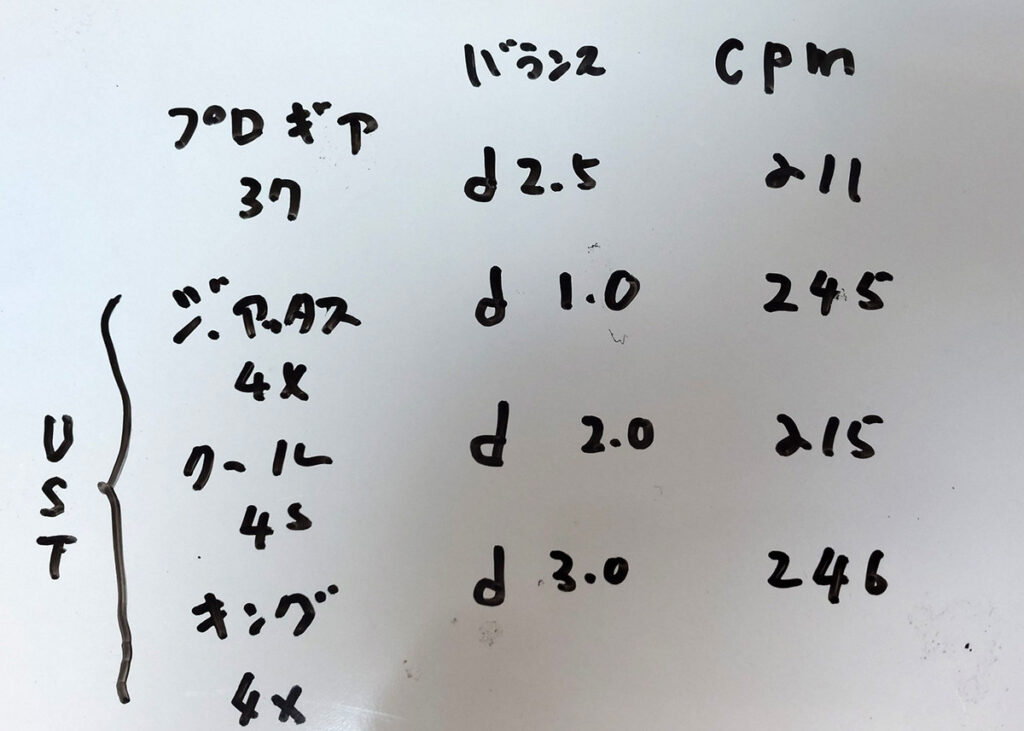 バランス cpm
プロギア
37 d2.5 211
ジ・アッタス d 1.0 245
4X
クール d 2.0 215
4S
キング d 3.0 246
4X
UST